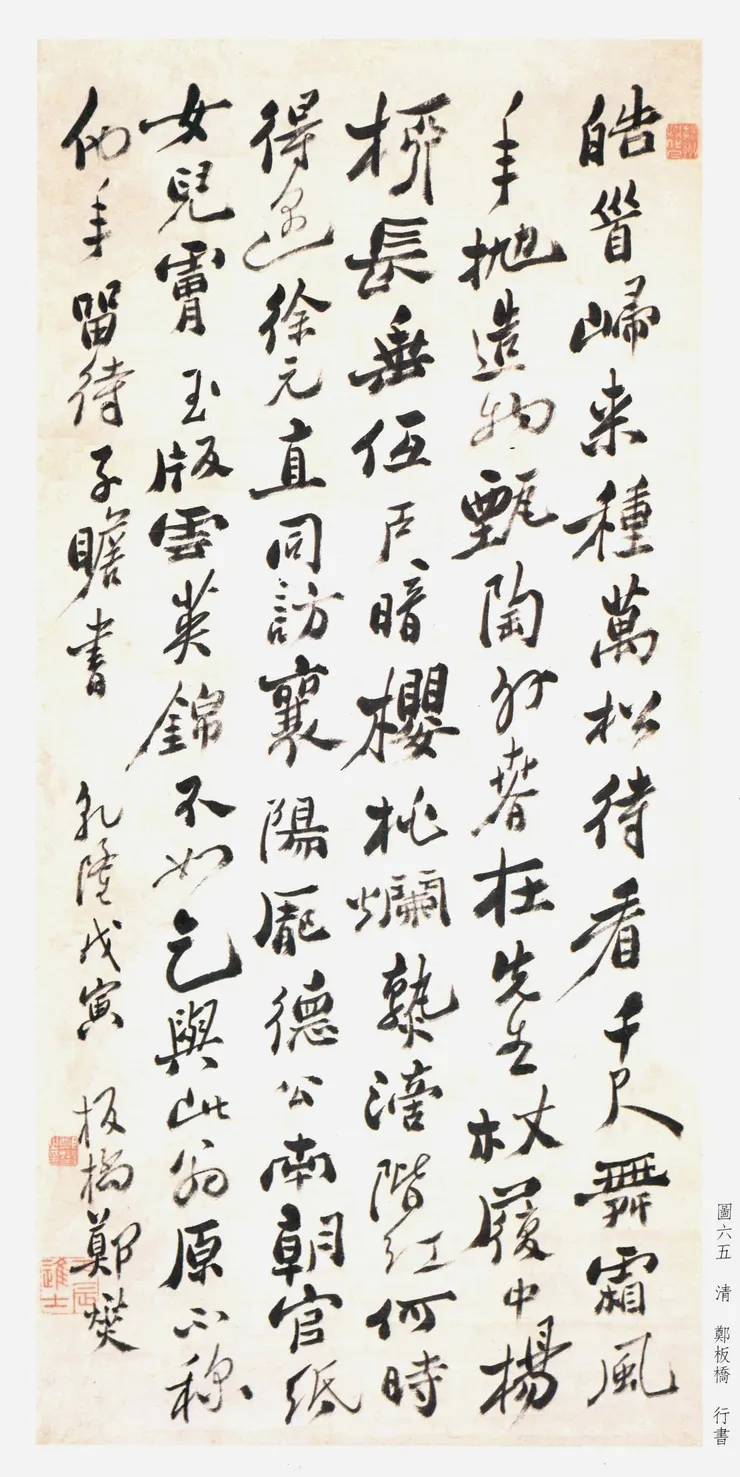 皓首歸来種萬松待看千尺舞霜風
年抛造物甄陶外春在先生杖屨中楊
柳長垂低戶暗櫻桃爛熟滴階紅何時
得徐元直同訪襄陽龐德公南朝官紙
女兒膚玉版雲英錦不如乞與此翁原不稱
他年留待子瞻書 乾隆戊寅 板橋鄭燮
圖六五 清 鄭板橋 行書